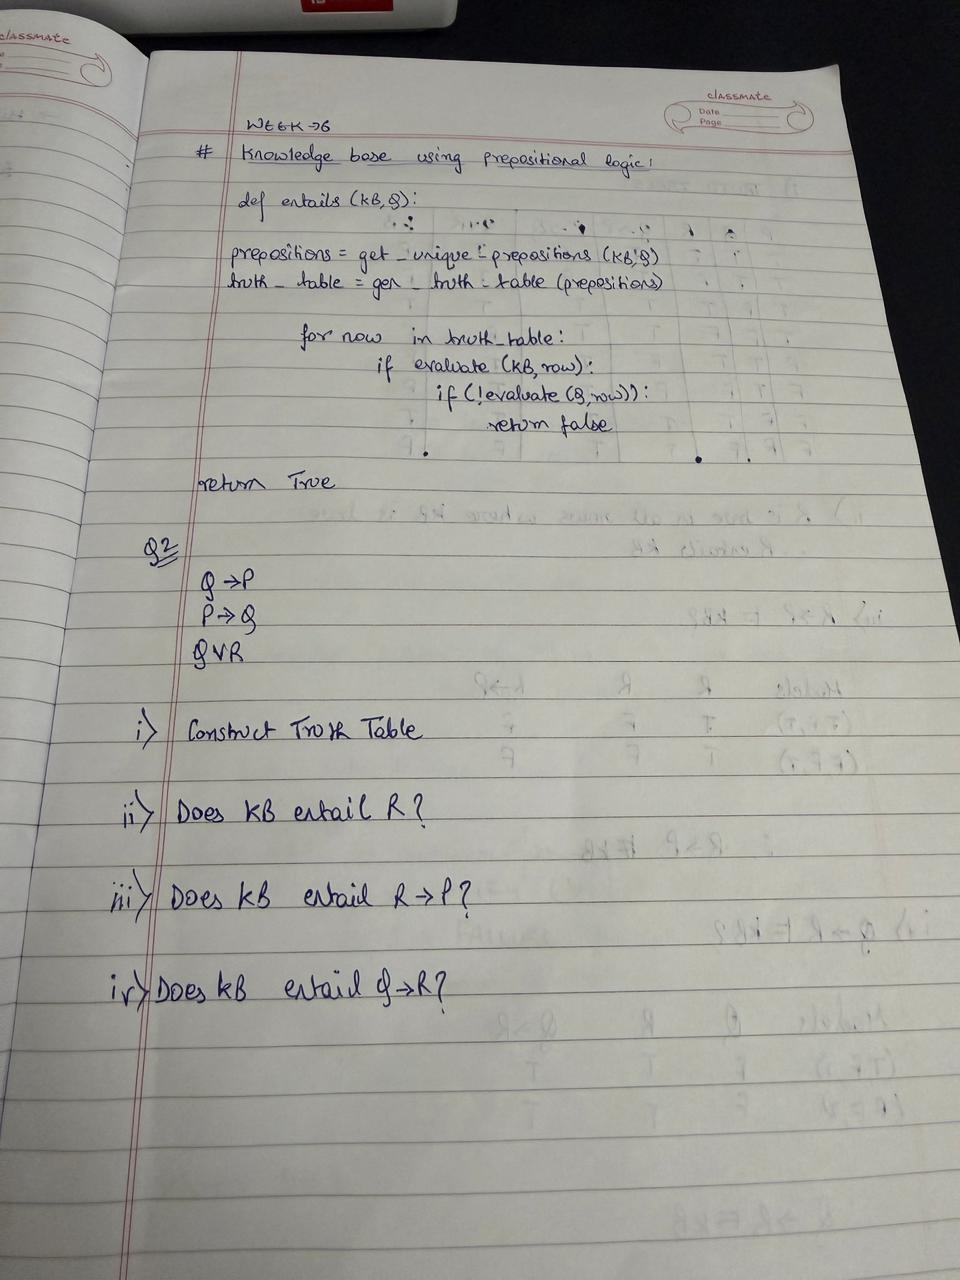 classmate
classmate
Date
Page
WEEK → 6
# Knowledge base using prepositional logic:
def entails (KB, Q):
prepositions = get _ unique - prepositions (KB, Q)
truth _ table = gen _ truth - table (prepositions)
for now in truth_table:
if evaluate (KB, row):
if (!evaluate (Q, row)):
return false
return True
Q2
Q → P
P → Q
Q V R
i) Construct Truth Table
ii) Does KB entail R?
iii) Does KB entail R → P?
iv) Does KB entail Q → R?